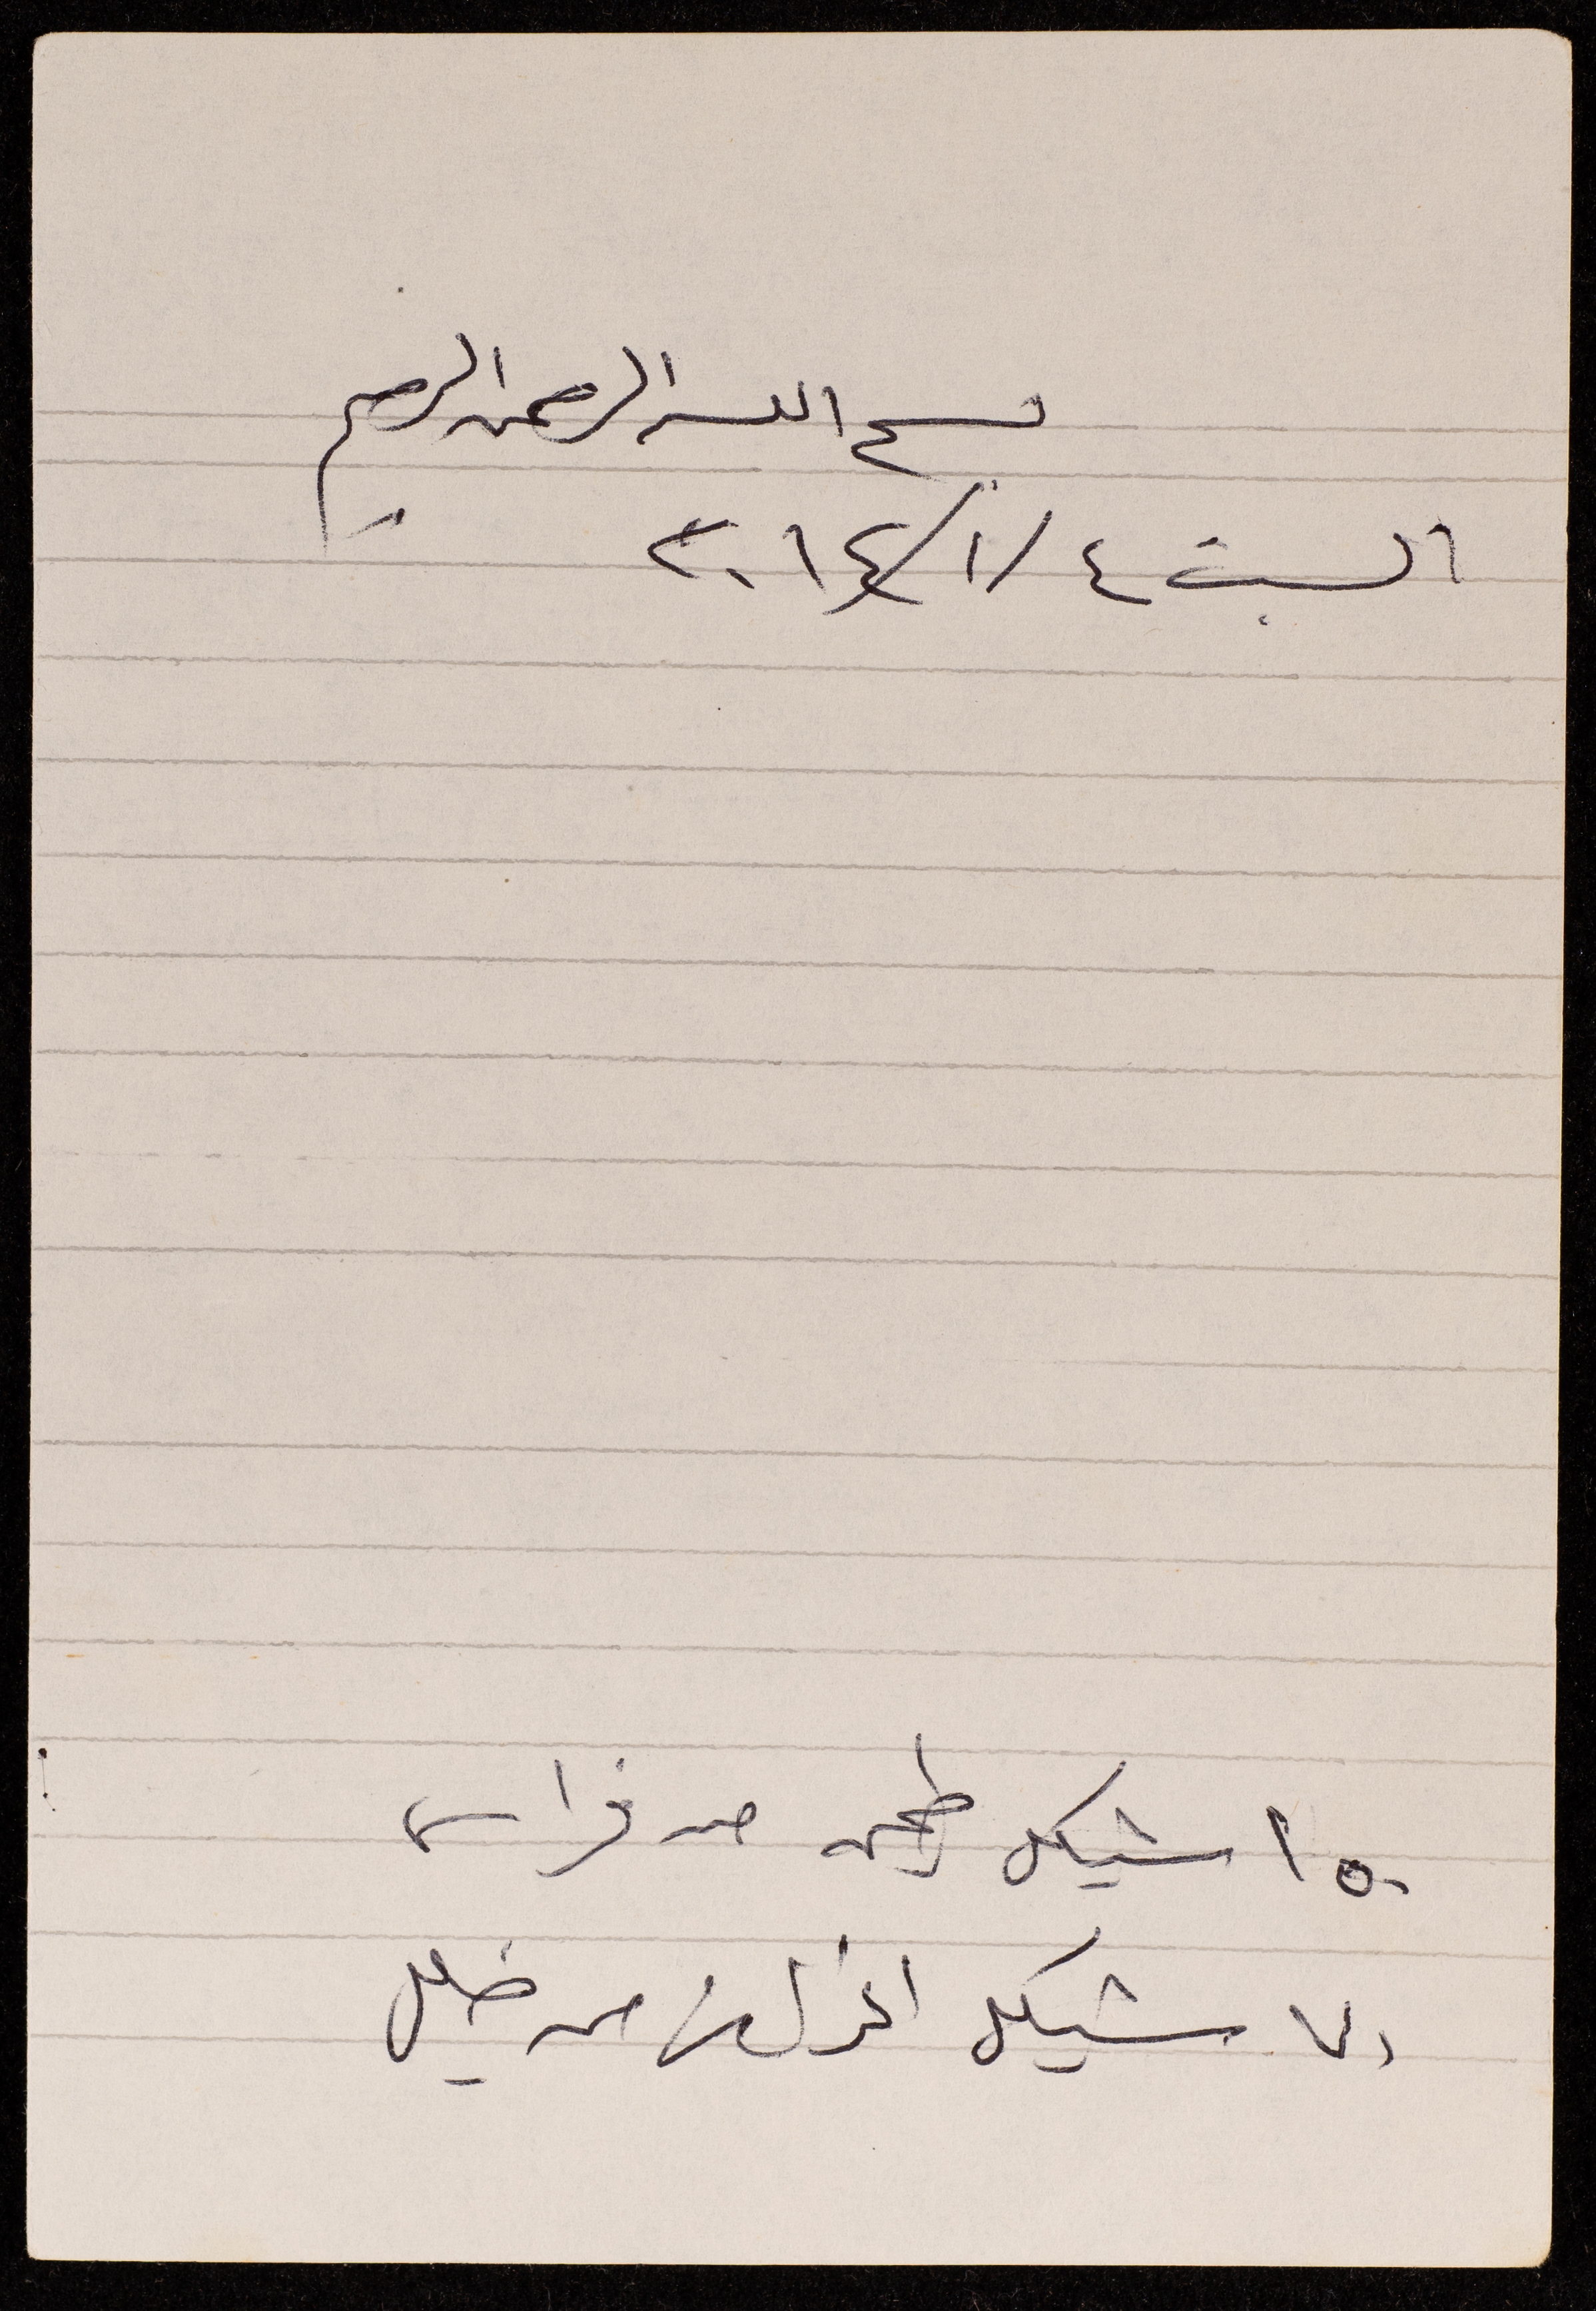 بسم الله الرحمن الرحيم
السبت ٤/١/٢٠١٤
١٥٠ شيكل طحين من فراس
٧٠ شيكل من خليل